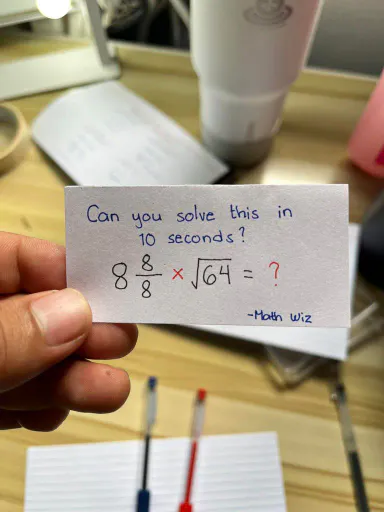 Can you solve this in
10 seconds?
8 8/8 × √64 = ?
-Math Wiz